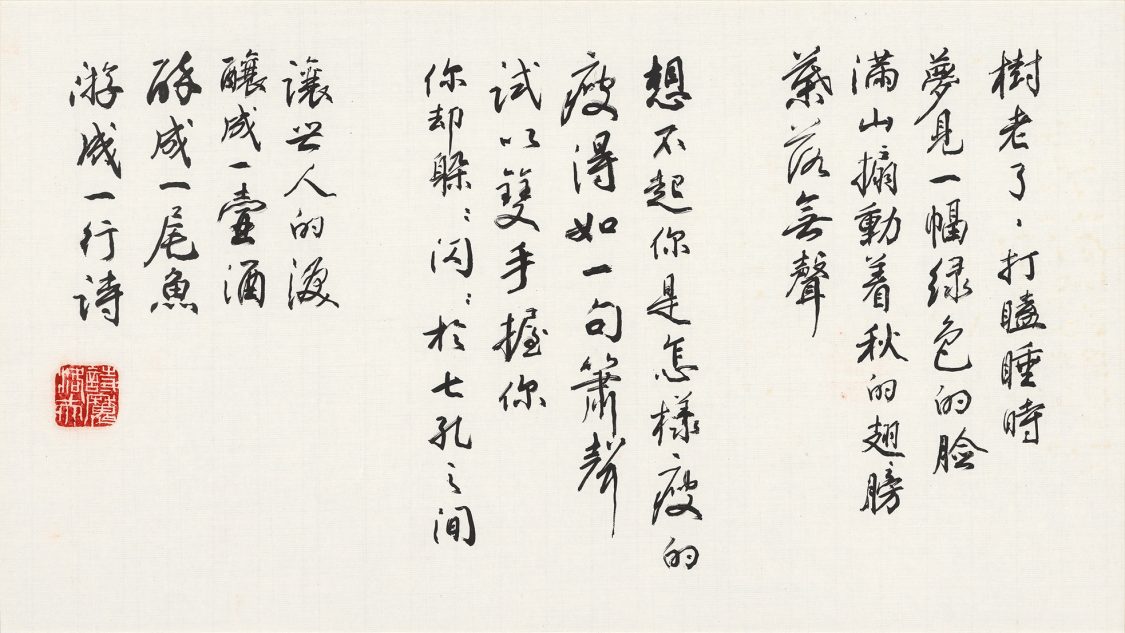 樹老了，打瞌睡時
夢見一幅绿色的臉
滿山搧動着秋的翅膀
葉落無聲
想不起你是怎樣瘦的
瘦得如一句簫聲
試以雙手握你
你却躲躲閃閃於七孔之间
讓世人的淚
釀成一壺酒
醉成一尾魚
游成一行詩